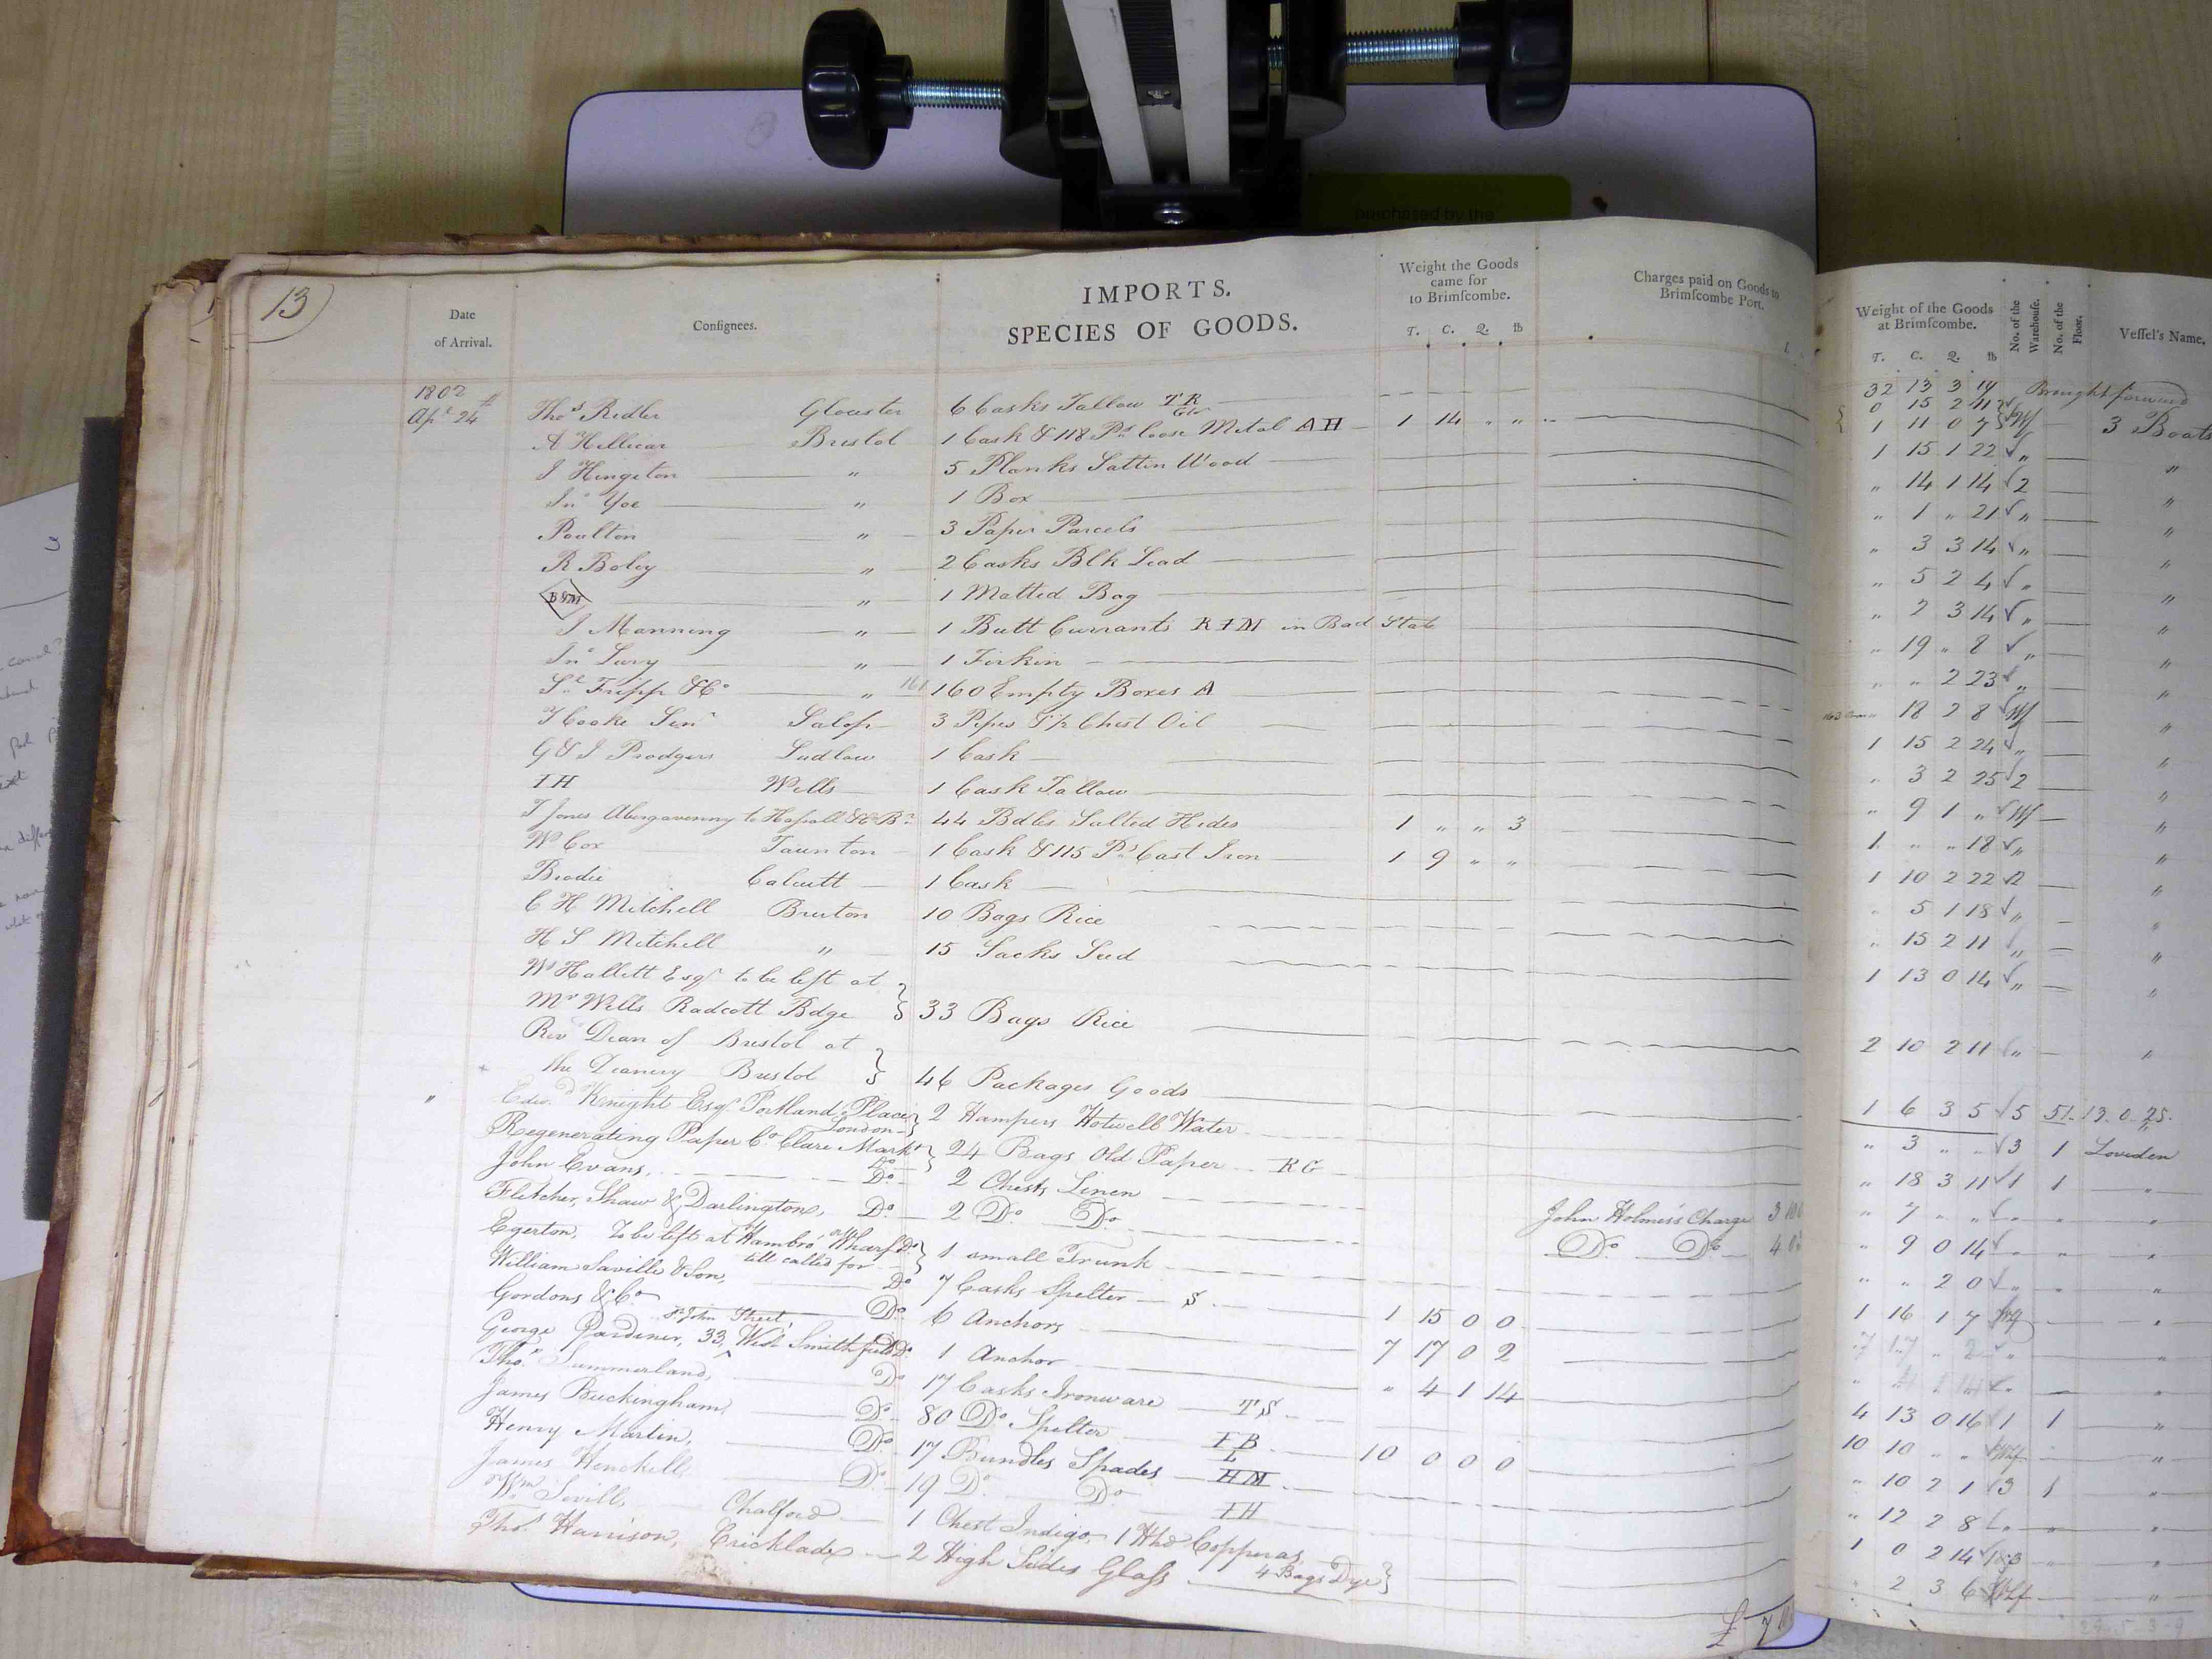 purchased by the
13
Date
of Arrival.
Conſignees.
IMPORTS.
SPECIES OF GOODS.
Weight the Goods
came for
to Brimſcombe.
T. C. Q. lb
Charges paid on Goods to
Brimſcombe Port.
Weight of the Goods
at Brimſcombe.
T. C. Q. lb
No. of the
Warehouſe.
No. of the
Floor.
Veſſel's Name.
1802
32 13 3 14 Brought forward
Apl 24 Thos Ridler Glouster 6 Casks Tallow TR 0 15 2 11
A Hellicar Bristol 1 Cask & 118 Ps loose Metal AH 1 14 " " 1 11 0 7 Wf 3 Boats
J Hingston " 5 Planks Sattin Wood 1 15 1 22 " "
Jno Yoe " 1 Box " 14 1 14 2 "
Poulton " 3 Paper Parcels " 1 " 21 " "
R Boley " 2 Casks Blk Lead " 3 3 14 " "
" 1 Matted Bag " 5 2 4 " "
J Manning " 1 Butt Currants RIM in Bad State " 2 3 14 " "
Jno Lury " 1 Firkin " 19 " 8 " "
Sl Fripp & Co " 161 160 Empty Boxes A " " 2 23 " "
T Cooke Senr Salop 3 Pipes & 1/2 Chest Oil " 18 2 8 Wf "
G & J Prodgers Ludlow 1 Cask 1 15 2 24 " "
IH Wells 1 Cask Tallow " 3 2 25 2 "
T Jones Abergavenny to Hassall & Co Br 44 Bdles Salted Hides 1 " " 3 " 9 1 " Wf "
W Cox Taunton 1 Cask & 115 Ps Cast Iron 1 9 " " 1 " " 18 " "
Brodie Calcutt 1 Cask 1 10 2 22 2 "
C H Mitchell Bruton 10 Bags Rice " 5 1 18 " "
H S Mitchell " 15 Sacks Seed " 15 2 11 " "
Wm Hallett Esqr to be left at 1 13 0 14 " "
Mr Wells Radcott Bdge 33 Bags Rice
Revd Dean of Bristol at 2 10 2 11 " "
the Deanery Bristol 46 Packages Goods
Edwd Knight Esqr Portland Place 2 Hampers Hotwell Water 1 6 3 5 5 51.13.0.25.
London
Regenerating Paper Co. Clare Markt 24 Bags Old Paper RG " 3 " " 3 1 Loveden
Do
John Evans, Do 2 Chests Linen John Holmes's Charge 3 " 18 3 11 1 1 "
Fletcher, Shaw & Darlington, Do 2 Do Do Do Do 4 " 7 " " " " "
Egerton, To be left at Hambro' Wharf Do 1 small Trunk " 9 0 14 " " "
till called for
William Saville & Son, Do 7 Casks Spelter S 1 15 0 0 " " 2 0 " " "
Gordons & Co Do 6 Anchors 7 17 0 2 1 16 1 7 Whf "
St John Street,
George Gardiner, 33, West Smithfield Do 1 Anchor " 4 1 14 7 17 " 2 " "
Thos Summerland, Do 17 Casks Ironware TS
James Buckingham, Do 80 Do Spelter IB 10 0 0 0 4 13 0 16 1 1 "
L
Henry Martin, Do 17 Bundles Spades HM 10 10 " " Whf "
James Henckell, Do 19 Do Do IH " 10 2 1 3 1 "
Wm Sevill, Chalford 1 Chest Indigo, 1 Hhd Copperas, " 12 2 8 " " "
4 Bags Dye
Thos Harrison, Cricklade 2 High Sides Glass 1 0 2 14
" 2 3 6 Whf "
£ 7